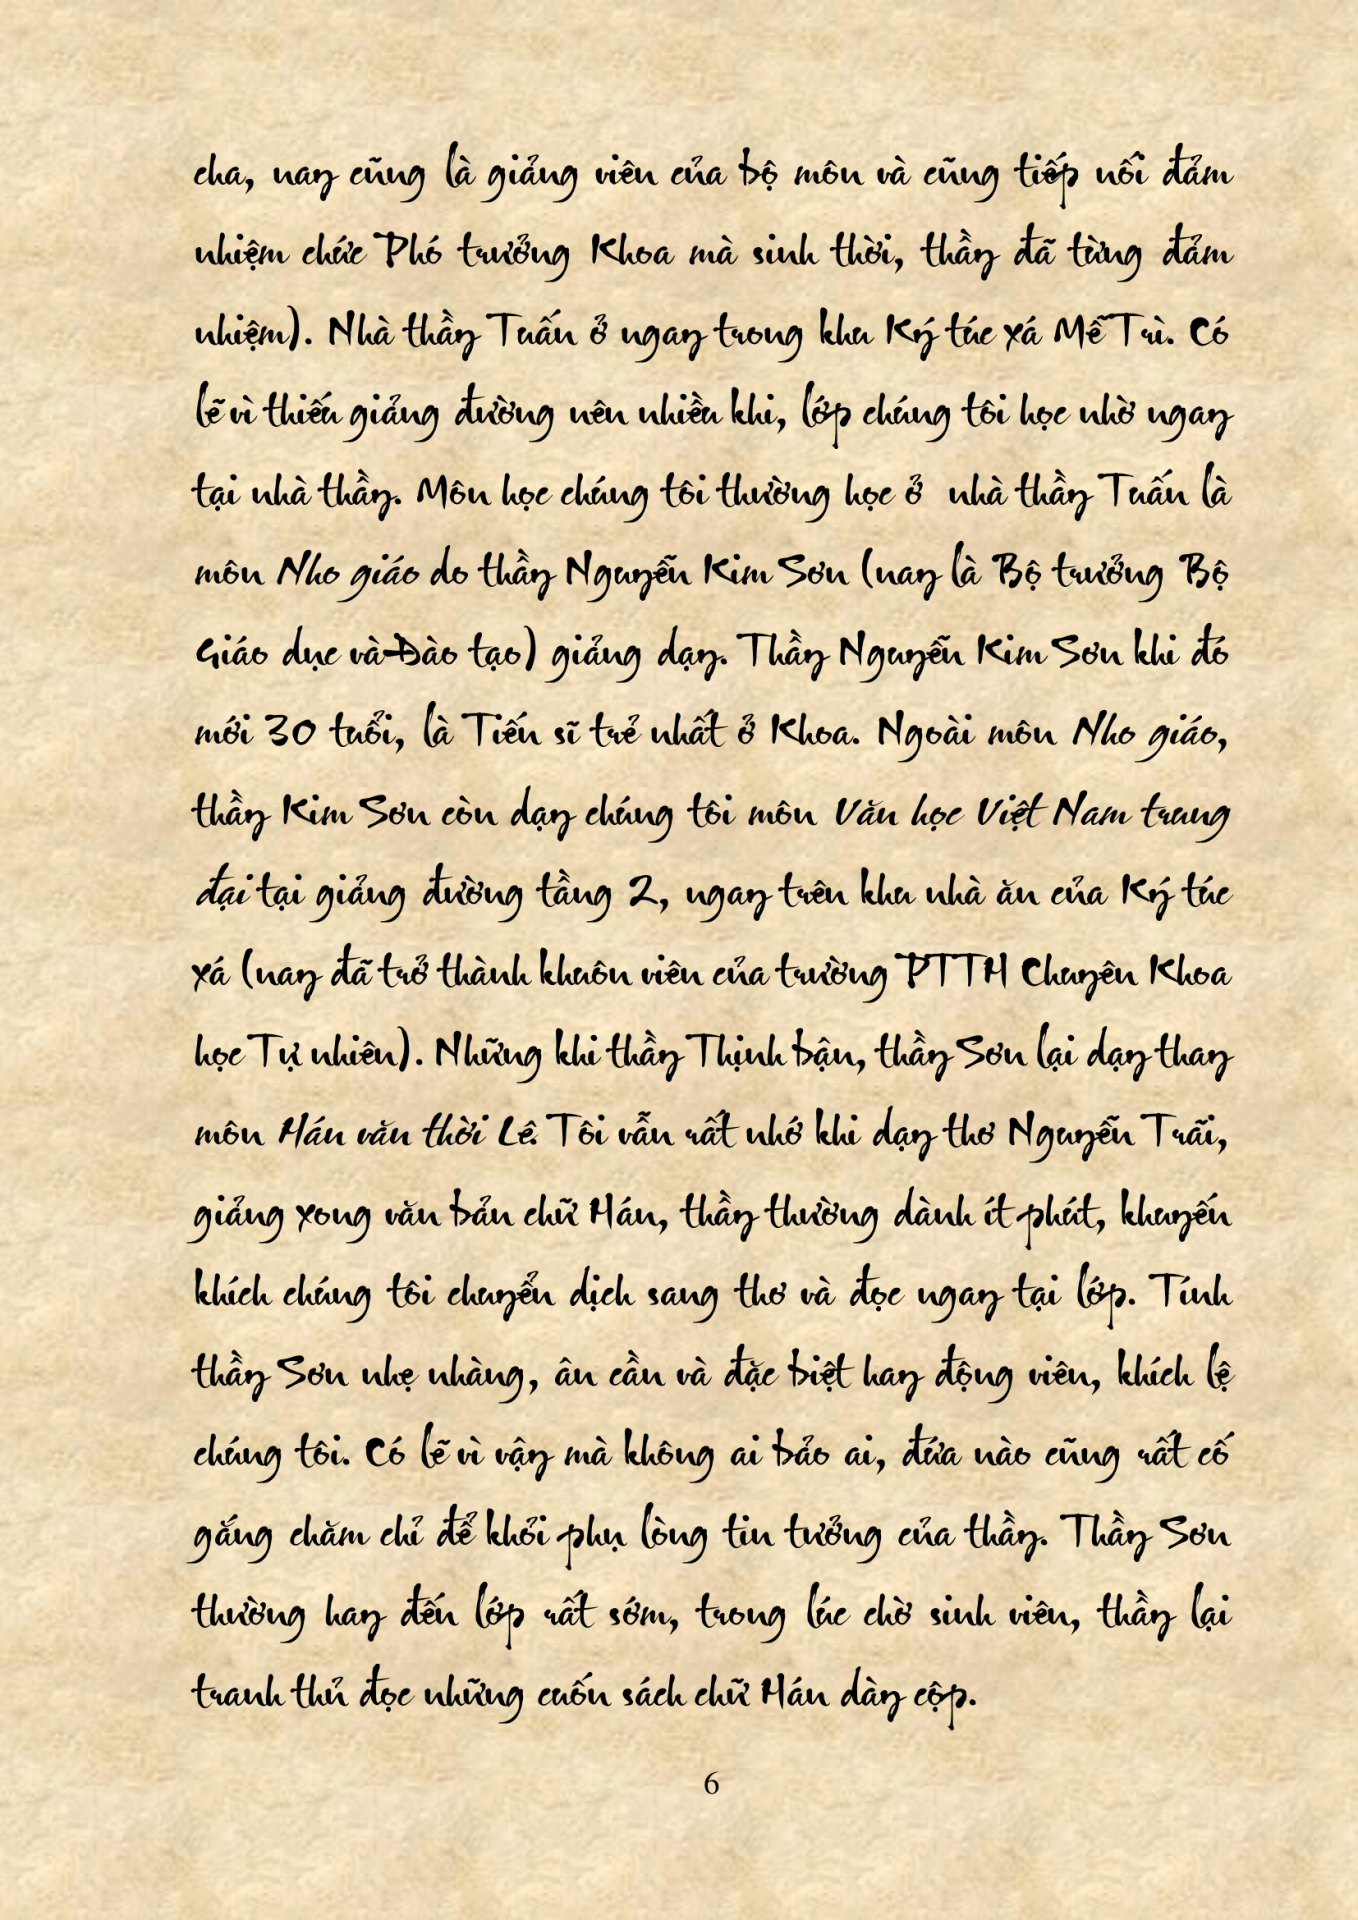 cha, nay cũng là giảng viên của bộ môn và cũng tiếp nối đảm
nhiệm chức Phó trưởng Khoa mà sinh thời, thầy đã từng đảm
nhiệm). Nhà thầy Tuấn ở ngay trong khu Ký túc xá Mễ Trì. Có
lẽ vì thiếu giảng đường nên nhiều khi, lớp chúng tôi học nhờ ngay
tại nhà thầy. Môn học chúng tôi thường học ở nhà thầy Tuấn là
môn Nho giáo do thầy Nguyễn Kim Sơn (nay là Bộ trưởng Bộ
Giáo dục và Đào tạo) giảng dạy. Thầy Nguyễn Kim Sơn khi đó
mới 30 tuổi, là Tiến sĩ trẻ nhất ở Khoa. Ngoài môn Nho giáo,
thầy Kim Sơn còn dạy chúng tôi môn Văn học Việt Nam trung
đại tại giảng đường tầng 2, ngay trên khu nhà ăn của Ký túc
xá (nay đã trở thành khuôn viên của trường PTTH Chuyên Khoa
học Tự nhiên). Những khi thầy Thịnh bận, thầy Sơn lại dạy thay
môn Hán văn thời Lê. Tôi vẫn rất nhớ khi dạy thơ Nguyễn Trãi,
giảng xong văn bản chữ Hán, thầy thường dành ít phút, khuyến
khích chúng tôi chuyển dịch sang thơ và đọc ngay tại lớp. Tính
thầy Sơn nhẹ nhàng, ân cần và đặc biệt hay động viên, khích lệ
chúng tôi. Có lẽ vì vậy mà không ai bảo ai, đứa nào cũng rất cố
gắng chăm chỉ để khỏi phụ lòng tin tưởng của thầy. Thầy Sơn
thường hay đến lớp rất sớm, trong lúc chờ sinh viên, thầy lại
tranh thủ đọc những cuốn sách chữ Hán dày cộp.
6